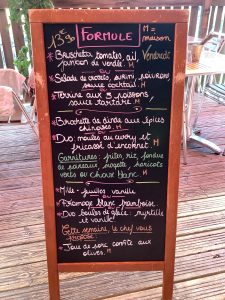 13€90 FORMULE M = maison
Vendredi
Bruschetta tomates, ail,
jambon de vendée. M
ou
Salade de crevettes, surimi,
sauce cocktail. M
Terrine aux 3 poissons,
sauce tartare M
Brochette de dinde aux épices
chinoises. M
Dos moules au curry et
fricassé d'encornet. M
Garnitures: pâtes, riz, fondue
de poireaux, haricots
verts ou choux blanc M
Mille-feuilles vanille
ou
Fromage blanc framboise.
Des boules de glace, myrtille
et vanille
Cette semaine, le chef vous
propose:
Joue de porc confite aux
olives. M